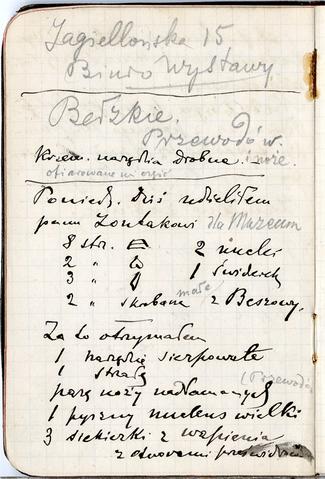 Jagiellońska 15
Biuro Wystawy
Bełzkie.
Przewodów.
Krzem. narzędzia drobne. i noże.
ofiarowane mi części
Poniedz. Dziś udzieliłem
panu Żontakowi dla Muzeum
8 str. 2 nuclei
2 " 1 świderek
3 "
2 " skrobacz małe z Beszowy.
Za to otrzymałem
1 narzędzie sierpowate
1 strzałę
parę noży nadłamanych (Przewodów
1 pyszny nucleus wielki
3 siekierki z wapienia
z otworami